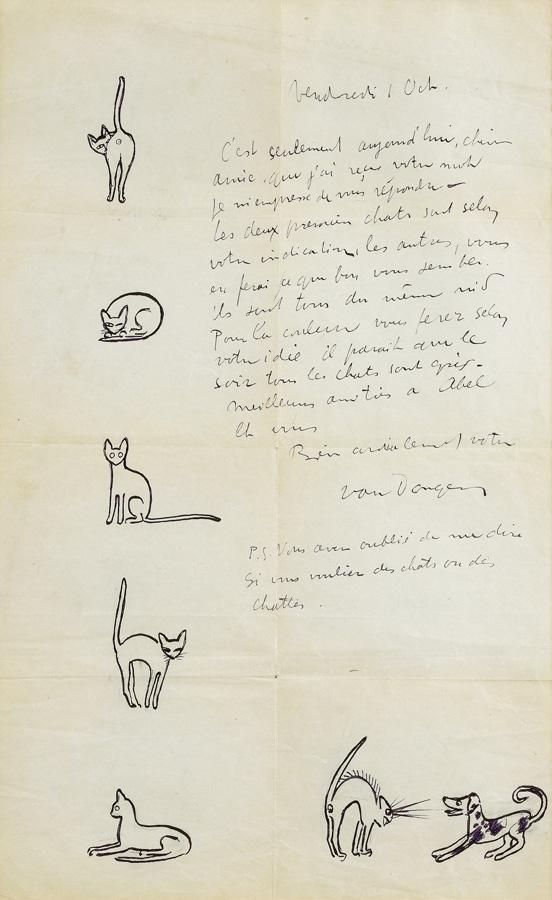 Vendredi 1 Oct.
C'est seulement aujourd'hui, chère
amie, que j'ai reçu votre mot
Je m'empresse de vous répondre —
Les deux premiers chats sont selon
votre indication, les autres, vous
en ferez ce que bon vous semble.
ils sont tous du même nid
Pour la couleur vous ferez selon
votre idée il parait que le
soir tous les chats sont gris.
Meilleures amitiés a Abel
Et vous
Bien cordialement votre
van Dongen
P.S. Vous avez oublié de me dire
Si vous vouliez des chats ou des
chattes.